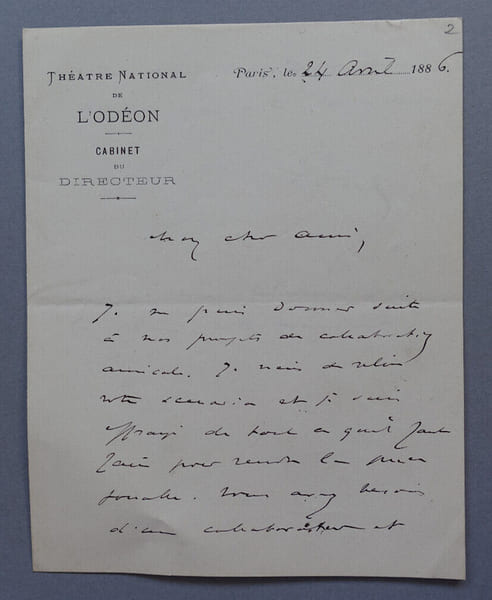 2
THÉATRE NATIONAL
DE
L'ODÉON
CABINET
DU
DIRECTEUR
Paris, le 24 Avril 1886.
Mon cher ami,
Je ne puis donner suite
à nos projets de collaboration
amicale. Je viens de relire
votre scenario et je suis
effrayé de tout ce qu'il faut
faire pour rendre la pièce
jouable. Vous avez besoin
d'un collaborateur et